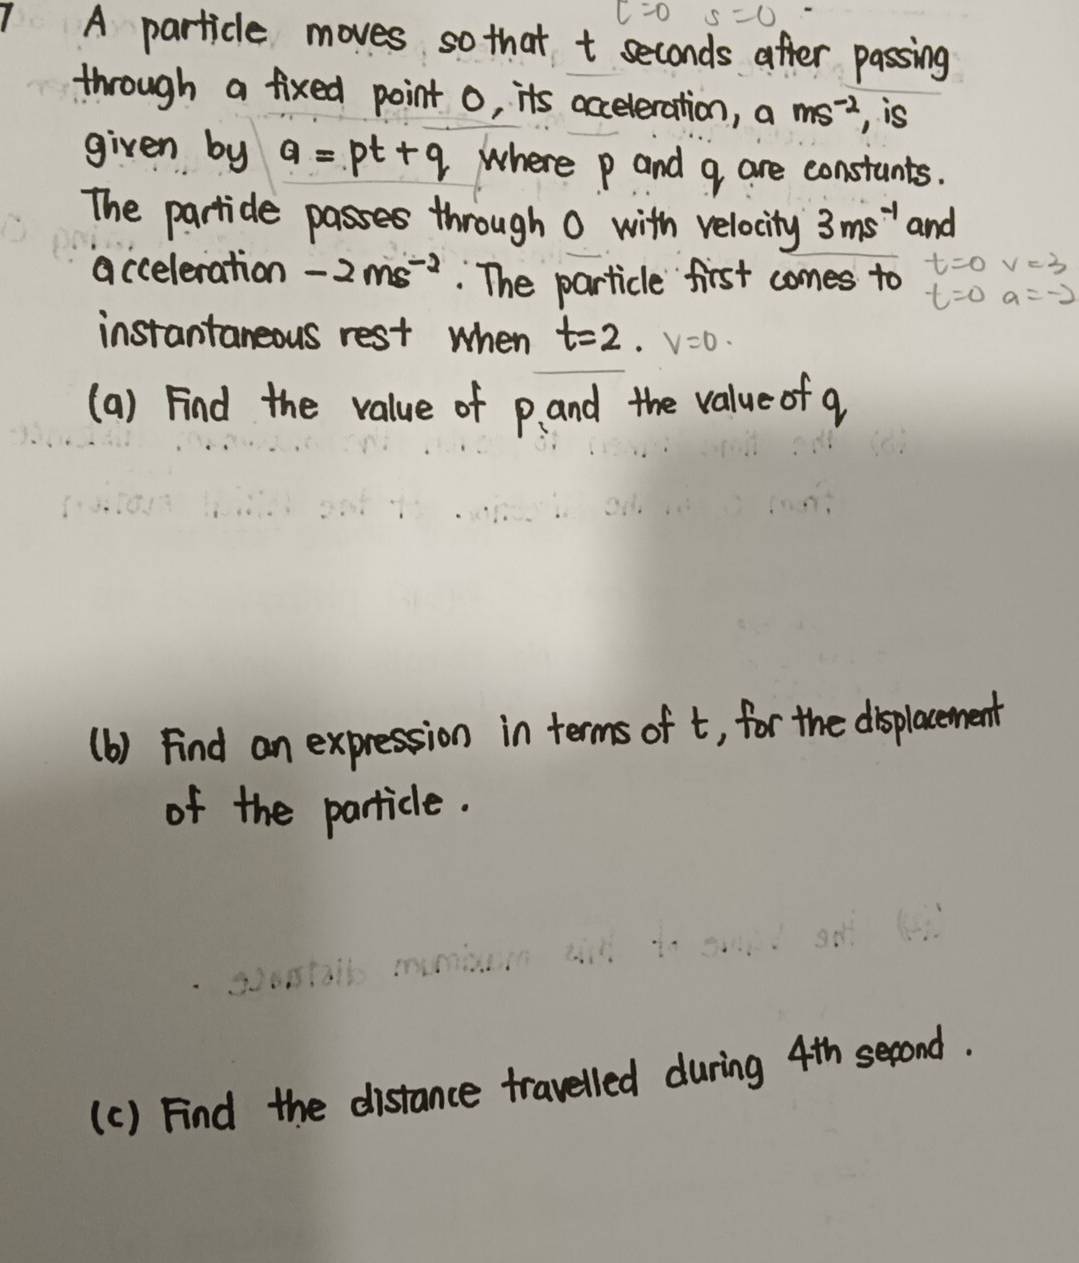 t=0 s=0
7 A particle moves so that t seconds after passing
through a fixed point O, its acceleration, a ms⁻², is
given by a = pt + q where p and q are constants.
The particle passes through O with velocity 3ms⁻¹ and
acceleration -2 ms⁻². The particle first comes to t=0 v=3
t=0 a=-2
instantaneous rest when t=2. v=0.
(a) Find the value of p and the value of q
(b) Find an expression in terms of t, for the displacement
of the particle.
(c) Find the distance travelled during 4th second.